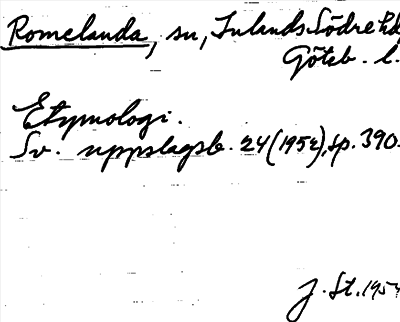 Romelanda, sn, Inlands Södre hd
Göteb. l.
Etymologi.
Sv. uppslagsb. 24 (1952), sp. 390.
J. St. 1954